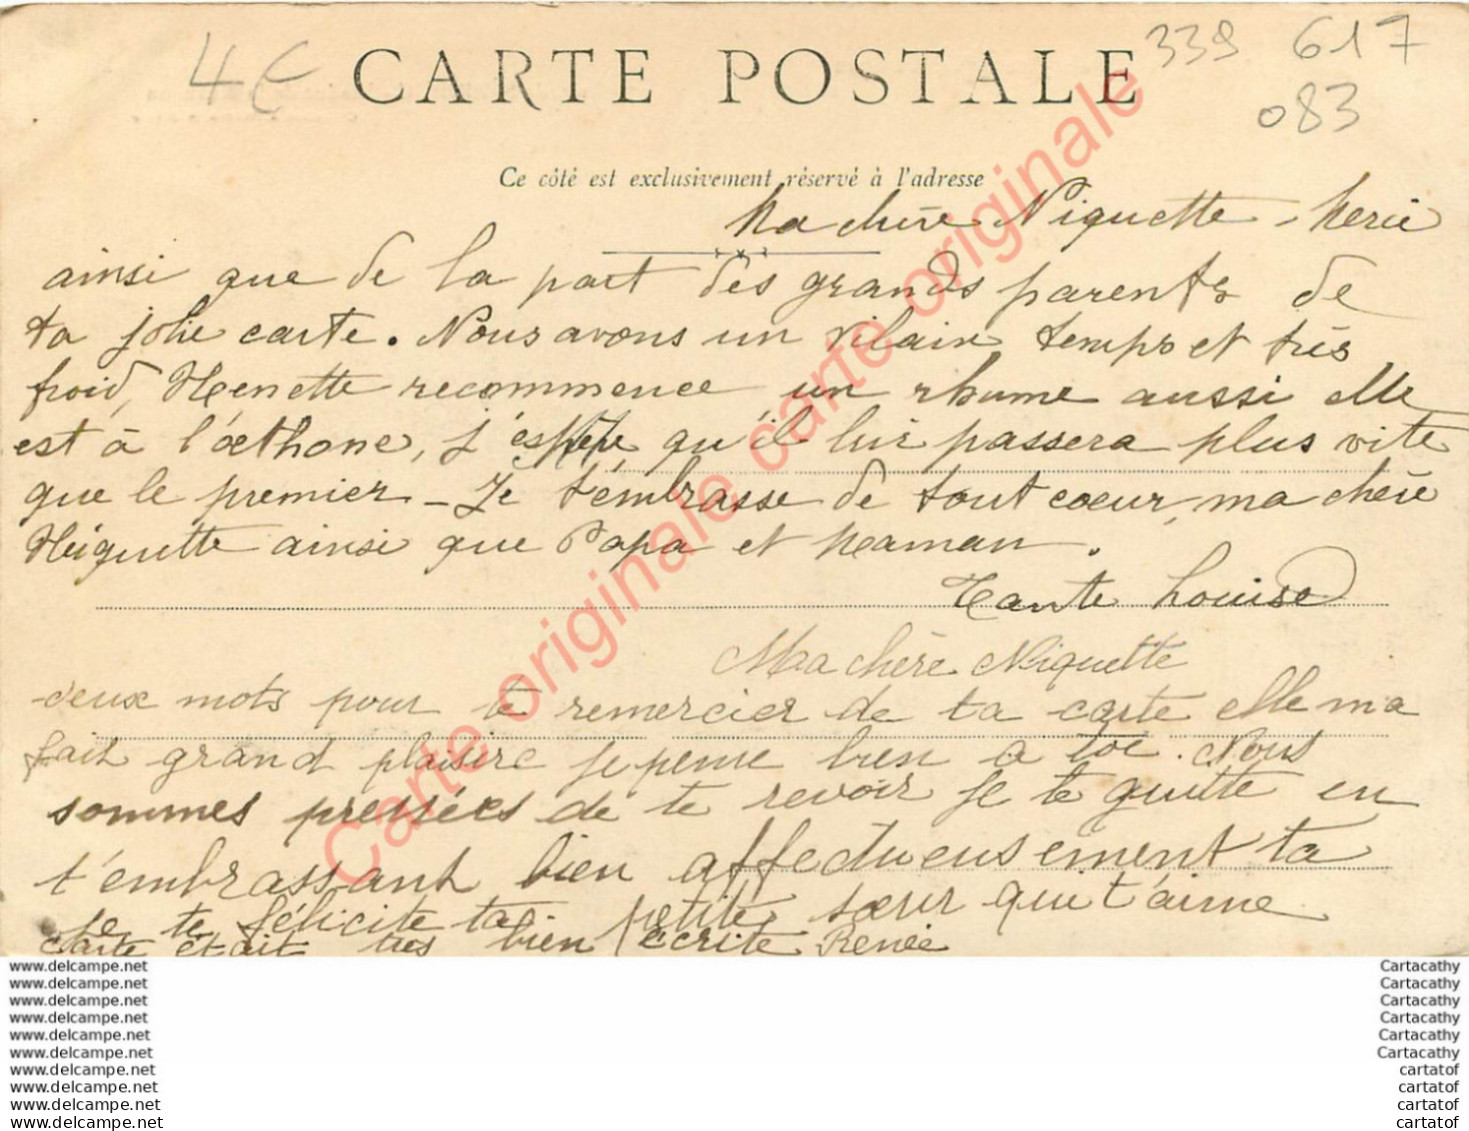 4€
CARTE POSTALE
339 617
083
Ce côté est exclusivement réservé à l'adresse
Ma chère Niquette - Merci
ainsi que de la part des grands parents de
ta jolie carte. Nous avons un vilain temps et très
froid, Nenette recommence un rhume aussi elle
est à l'œthone, j'espère qu'il lui passera plus vite
que le premier - Je t'embrasse de tout coeur, ma chère
Niquette ainsi que Papa et Maman.
Tante Louise
Ma chère Niquette
deux mots pour te remercier de ta carte elle ma
fait grand plaisire je pense bien a toi. Nous
sommes pressées de te revoir je te quitte en
t'embrassant bien affectueusement ta
petite sœur qui t'aime
Renée
Je te félicite ta
carte était très bien écrite
Carte originale carte originale
www.delcampe.net
www.delcampe.net
www.delcampe.net
www.delcampe.net
www.delcampe.net
www.delcampe.net
www.delcampe.net
www.delcampe.net
www.delcampe.net
www.delcampe.net
Cartacathy
Cartacathy
Cartacathy
Cartacathy
Cartacathy
Cartacathy
cartatof
cartatof
cartatof
cartatof